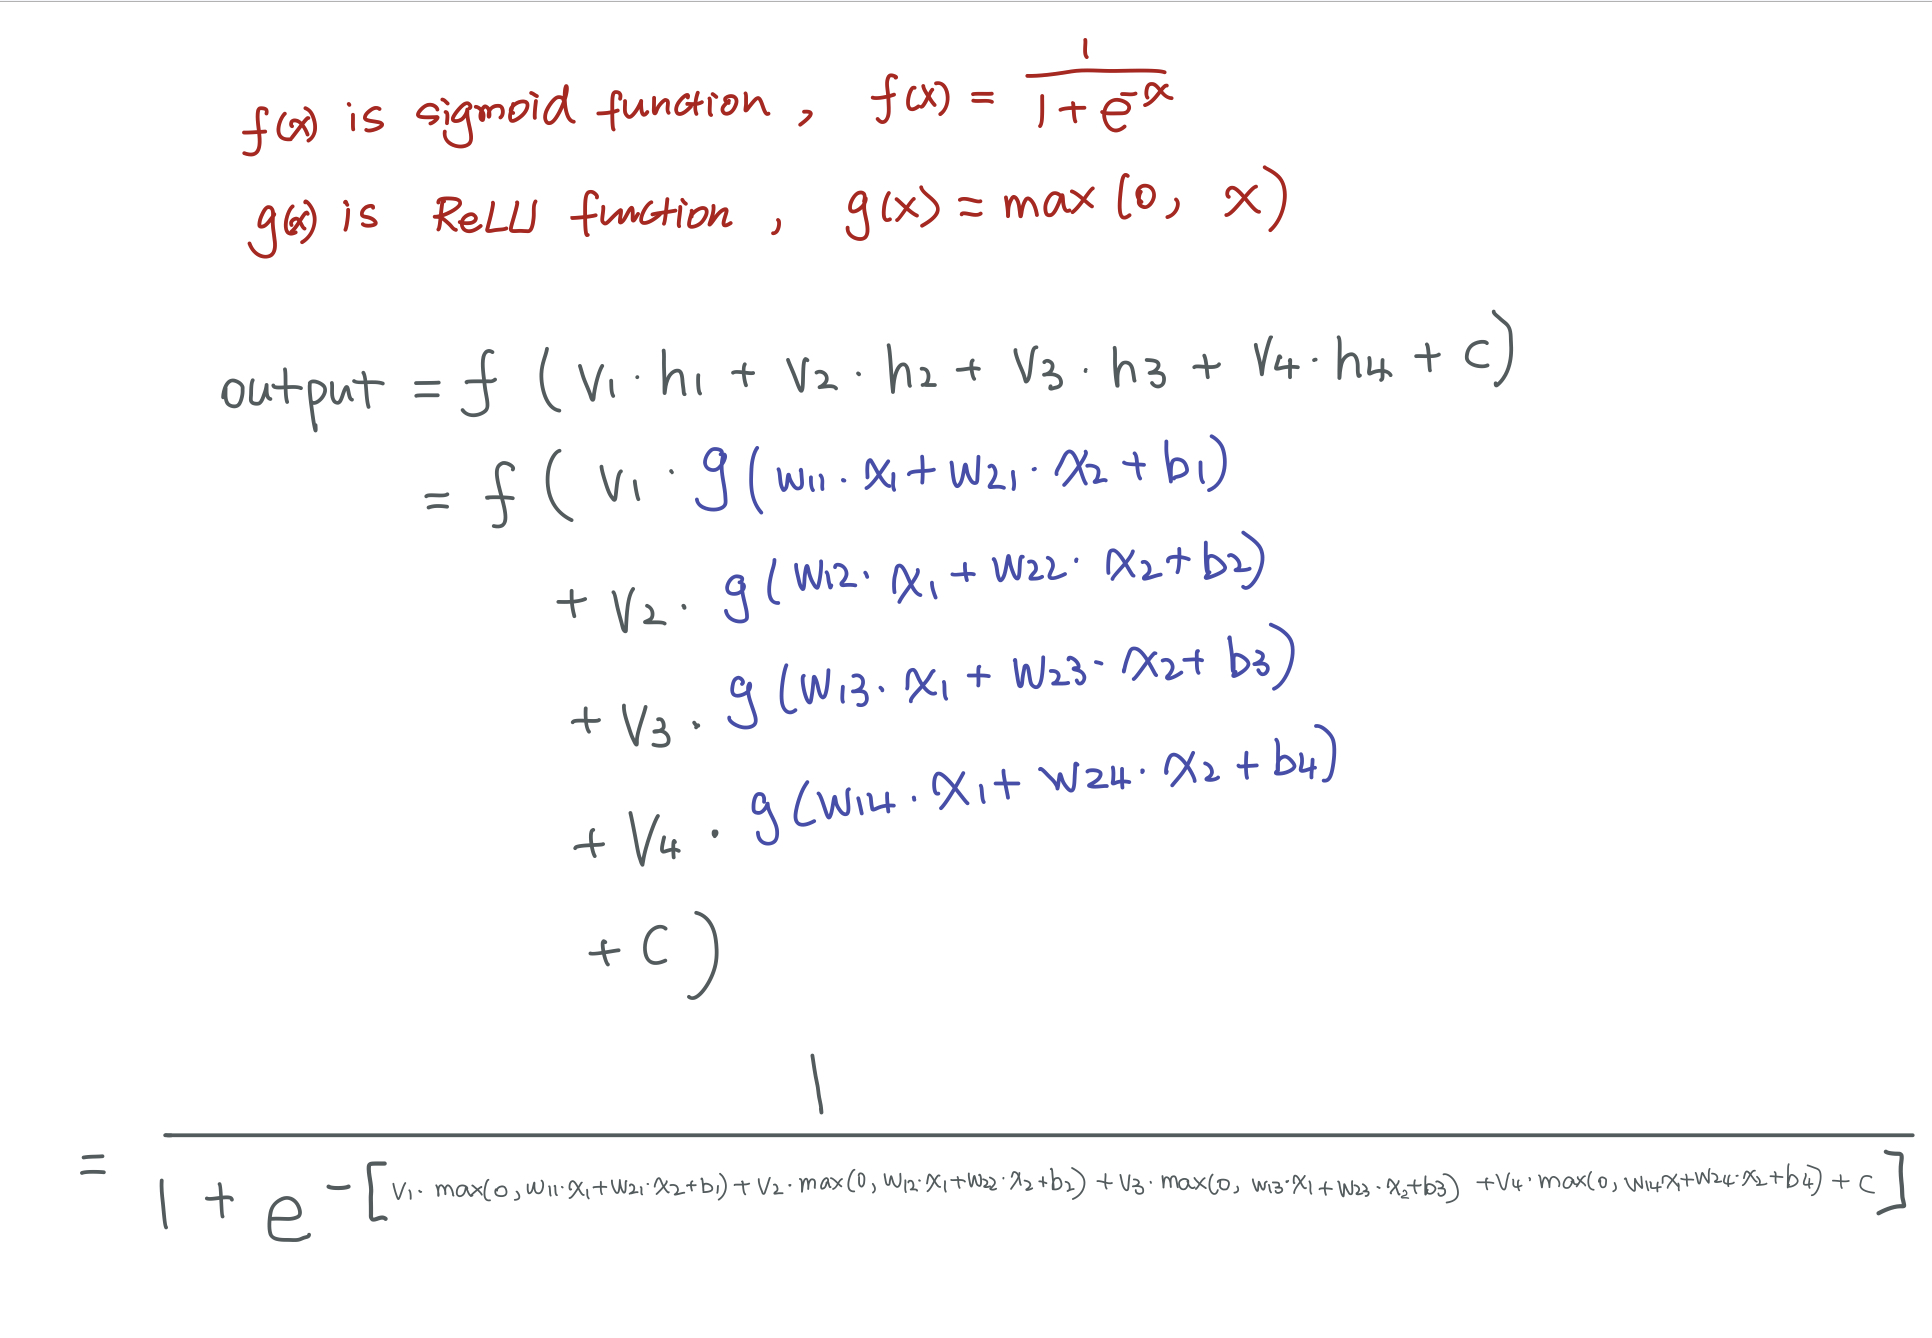 f(x) is sigmoid function, f(x) = 1 / (1 + e^-x)
g(x) is ReLU function, g(x) = max(0, x)
output = f(v1·h1 + v2·h2 + v3·h3 + v4·h4 + c)
= f(v1·g(w11·x1 + w21·x2 + b1)
+ v2·g(w12·x1 + w22·x2 + b2)
+ v3·g(w13·x1 + w23·x2 + b3)
+ v4·g(w14·x1 + w24·x2 + b4)
+ c)
= 1 / (1 + e^-[v1·max(0, w11·x1+w21·x2+b1) + v2·max(0, w12·x1+w22·x2+b2) + v3·max(0, w13·x1+w23·x2+b3) + v4·max(0, w14x1+w24·x2+b4) + c])